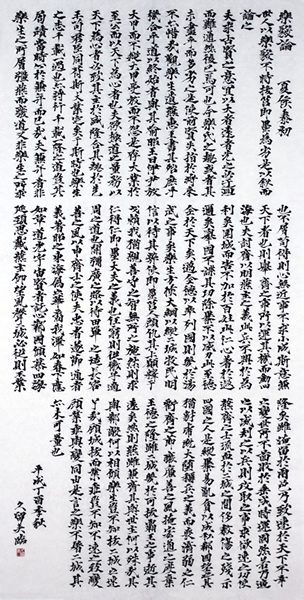 樂毅論　夏侯泰初
世人多以樂毅不時拔莒即墨為劣是以敘而
論之
夫求古賢之意宜以大者遠者先之必迂迴
而難通然後已焉可也今樂氏之趣或者其
未盡乎而多劣之是使前賢失指於將來
不亦惜哉觀樂生遺燕惠王書其殆庶乎
機合乎道以終始者與其喻昭王曰伊尹放
大甲而不疑大甲受放而不怨是存大業於
至公而以天下為心者也夫欲極道之量務以
天下為心者必致其主於盛隆合其趣於先
王苟君臣同符斯大業定矣于斯時也樂生
之志千載一遇也亦將行千載一隆之道豈其
局蹟當時止於兼并而已哉夫兼并者非
樂生之所屑強燕而廢道又非樂生之所求
也不屑苟得則心無近事不求小成斯意兼
天下者也則舉齊之事所以運其機而動四
海也夫討齊以明燕主之義此兵不興於為
利矣圍城而害不加於百姓此仁心著於遐
邇矣舉國不謀其功除暴不以威力此至德
令於天下矣邁全德以率列國則幾於湯
武之事矣樂生方恢大綱以縱二城收民明
信以待其弊使即墨莒人顧仇其上願釋干
戈賴我猶親善守之智無所之施然則求
仁得仁即墨大夫之義也任窮則從微子適
周之道也開彌廣之路以待田單之徒長容
善之風以申齊士之志使夫忠者遂節通者
義著昭之東海屬之華裔我澤如春下應
如草道光宇宙賢者託心鄰國傾慕四海
延頸思戴燕主仰望風聲二城必從則王業
隆矣雖淹留於兩邑乃致速於天下不幸
之變世所不圖敗於垂成時運固然若乃逼
之以威劫之以兵則攻取之事求欲速之功使
燕齊之士流血於二城之間侈殺傷之殘示
四國之人是縱暴易亂貪以成私鄰國望之其
猶豺虎既大墮稱兵之義而喪濟弱之仁
虧齊士之節廢廉善之風掩宏通之度棄
王德之隆雖二城幾於可拔霸王之事逝其
遠矣然則燕雖兼齊其與世主何以殊哉其
與鄰敵何以相傾樂生豈不知拔二城之速
了哉顧城拔而業乖豈不知不速之致變
顧業乖與變同由是言之樂生不屠二城其
亦未可量也
平成丁酉季秋
久田美